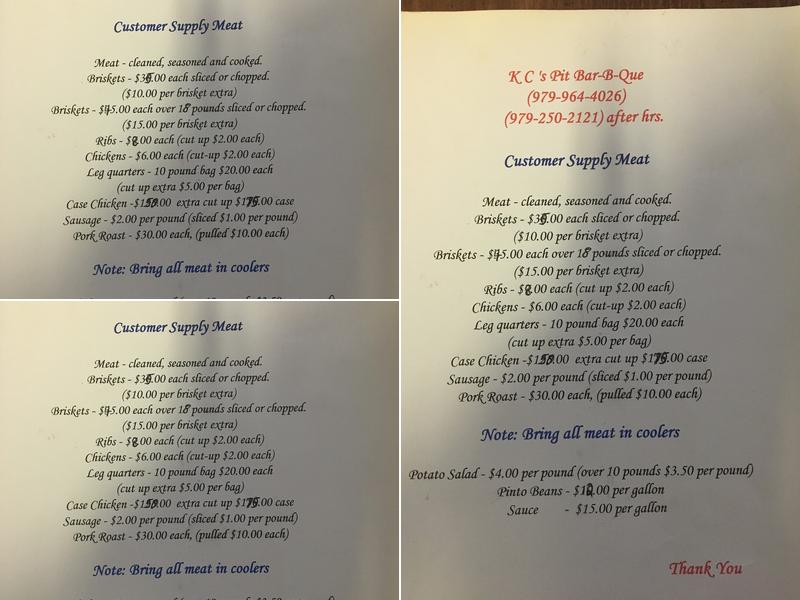 Customer Supply Meat
Meat - cleaned, seasoned and cooked.
Briskets - $35.00 each sliced or chopped.
($10.00 per brisket extra)
Briskets - $45.00 each over 18 pounds sliced or chopped.
($15.00 per brisket extra)
Ribs - $8.00 each (cut up $2.00 each)
Chickens - $6.00 each (cut-up $2.00 each)
Leg quarters - 10 pound bag $20.00 each
(cut up extra $5.00 per bag)
Case Chicken -$150.00 extra cut up $175.00 case
Sausage - $2.00 per pound (sliced $1.00 per pound)
Pork Roast - $30.00 each, (pulled $10.00 each)
Note: Bring all meat in coolers
Customer Supply Meat
Meat - cleaned, seasoned and cooked.
Briskets - $35.00 each sliced or chopped.
($10.00 per brisket extra)
Briskets - $45.00 each over 18 pounds sliced or chopped.
($15.00 per brisket extra)
Ribs - $8.00 each (cut up $2.00 each)
Chickens - $6.00 each (cut-up $2.00 each)
Leg quarters - 10 pound bag $20.00 each
(cut up extra $5.00 per bag)
Case Chicken -$150.00 extra cut up $175.00 case
Sausage - $2.00 per pound (sliced $1.00 per pound)
Pork Roast - $30.00 each, (pulled $10.00 each)
Note: Bring all meat in coolers
K C 's Pit Bar-B-Que
(979-964-4026)
(979-250-2121) after hrs.
Customer Supply Meat
Meat - cleaned, seasoned and cooked.
Briskets - $35.00 each sliced or chopped.
($10.00 per brisket extra)
Briskets - $45.00 each over 18 pounds sliced or chopped.
($15.00 per brisket extra)
Ribs - $8.00 each (cut up $2.00 each)
Chickens - $6.00 each (cut-up $2.00 each)
Leg quarters - 10 pound bag $20.00 each
(cut up extra $5.00 per bag)
Case Chicken -$150.00 extra cut up $175.00 case
Sausage - $2.00 per pound (sliced $1.00 per pound)
Pork Roast - $30.00 each, (pulled $10.00 each)
Note: Bring all meat in coolers
Potato Salad - $4.00 per pound (over 10 pounds $3.50 per pound)
Pinto Beans - per gallon
Sauce - $15.00 per gallon
Thank You